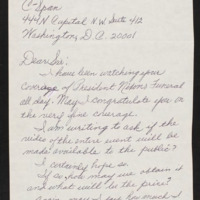 C-Span
444 N Capitol N.W. Suite 412
Washington, D.C. 20001
Dear Sir:
I have been watching your
coverage of President Nixons Funeral
all day. May I congratulate you on
the very fine coverage.
I am writing to ask if the
video of the entire event will be
made available to the public?
I certainly hope so.
If so, how may we obtain it
and what will be the price?
may I say how much I